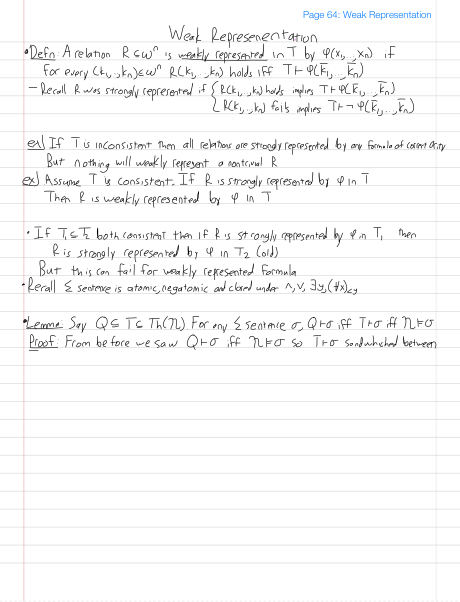 Page 64: Weak Representation
Weak Represenentation
• Defn: A relation R ⊆ ωⁿ is weakly represented in T by φ(x₁,..,xₙ) if
for every (k₁,..,kₙ)∈ωⁿ R(k₁,..,kₙ) holds iff T⊢φ(k̄₁,..,k̄ₙ)
– Recall R was strongly represented if { R(k₁,..,kₙ) holds implies T⊢φ(k̄₁,..,k̄ₙ)
R(k₁,..,kₙ) fails implies T⊢¬φ(k̄₁,..,k̄ₙ)
ex) If T is inconsistent then all relations are strongly represented by any formula of correct arity
But nothing will weakly represent a nontrivial R
ex) Assume T is consistent. If R is strongly represented by φ in T
Then R is weakly represented by φ in T
• If T₁⊆T₂ both consistent then if R is strongly represented by φ in T₁ then
R is strongly represented by φ in T₂ (old)
But this can fail for weakly represented formula
• Recall Σ sentence is atomic, negatomic and closed under ∧,∨, ∃y, (∀x)<y
• Lemma: Say Q⊆T⊆Th(𝓝). For any Σ sentence σ, Q⊢σ iff T⊢σ iff 𝓝⊨σ
Proof: From before we saw Q⊢σ iff 𝓝⊨σ so T⊢σ sandwhished between